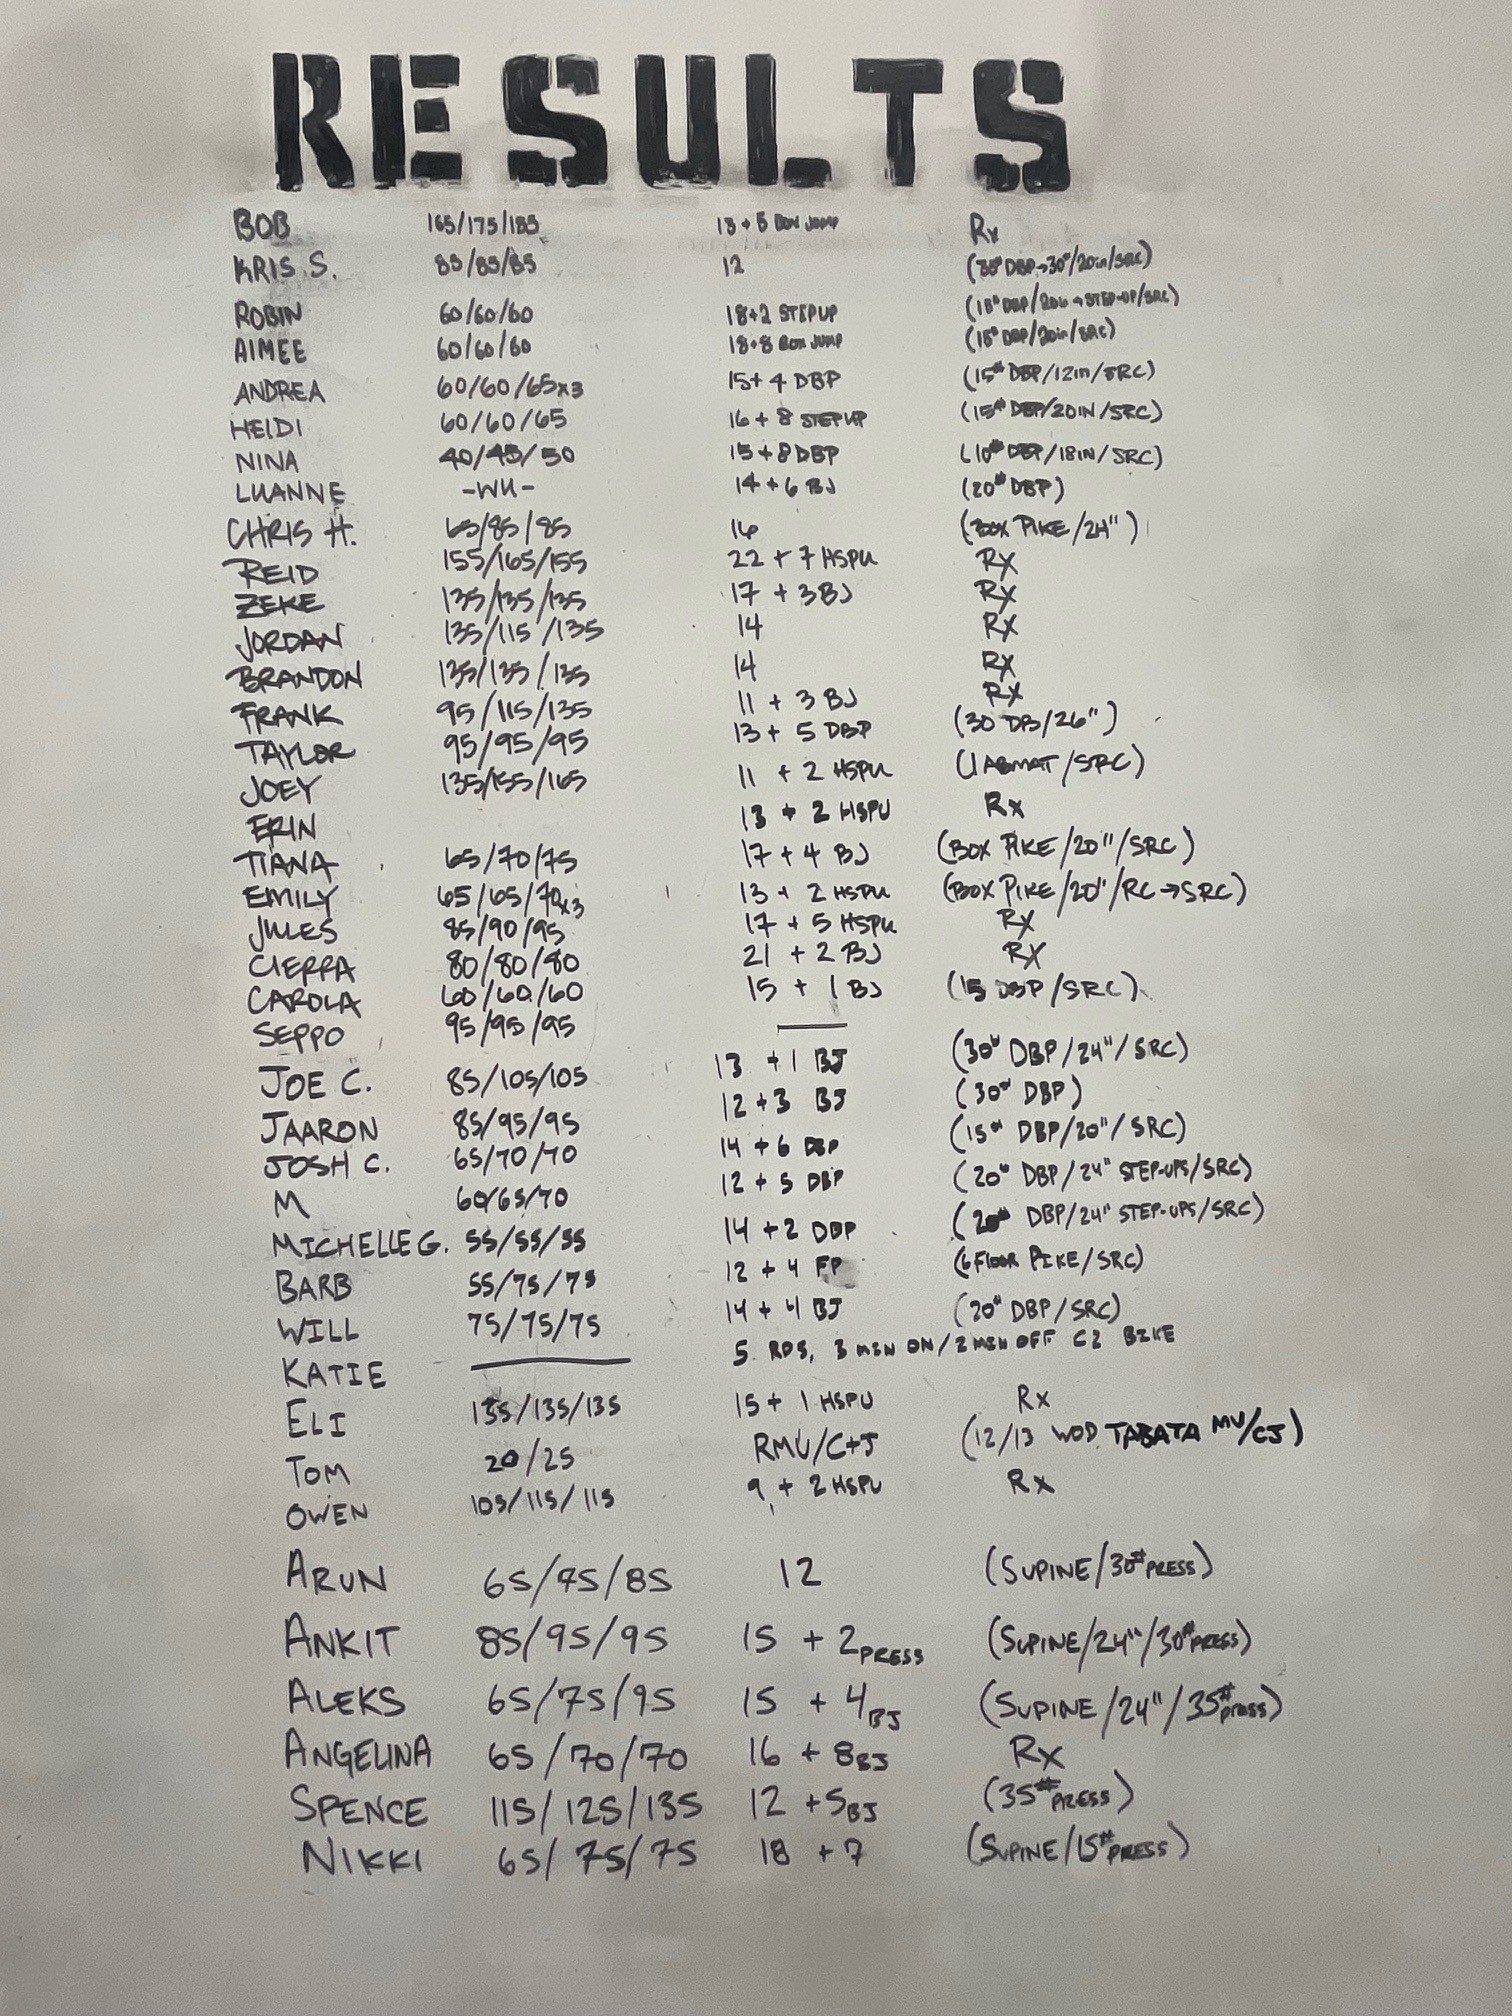 RESULTS
BOB 165/175/185 13 + 5 BOX JUMP Rx
KRIS S. 85/85/85 12 (35# DBP→30#/20in/SRC)
ROBIN 60/60/60 18+2 STEPUP (15# DBP/20in→STEP-UP/SRC)
AIMEE 60/60/60 18+8 BOX JUMP (15# DBP/20in/SRC)
ANDREA 60/60/65x3 15+4 DBP (15# DBP/12in/SRC)
HEIDI 60/60/65 16+8 STEPUP (15# DBP/20IN/SRC)
NINA 40/45/50 15+8DBP (10# DBP/18IN/SRC)
LUANNE -WU- 14+6 BJ (20# DBP)
CHRIS H. 65/85/85 16 (BOX PIKE/24")
REID 155/165/155 22 + 7 HSPU Rx
ZEKE 135/135/135 17 + 3BJ Rx
JORDAN 135/115/135 14 Rx
BRANDON 135/135/135 14 Rx
FRANK 95/115/135 11 + 3 BJ Rx
TAYLOR 95/95/95 13 + 5 DBP (30 DB/26")
JOEY 135/155/165 11 + 2 HSPU (1 ABMAT/SRC)
ERIN 13 + 2 HSPU Rx
TIANA 65/70/75 17 + 4 BJ (BOX PIKE/20"/SRC)
EMILY 65/65/70x3 13 + 2 HSPU (BOX PIKE/20"/RC→SRC)
JULES 85/90/95 17 + 5 HSPU Rx
CIERRA 80/80/80 21 + 2 BJ Rx
CAROLA 60/60/60 15 + 1 BJ (15 DBP/SRC)
SEPPO 95/95/95 —
JOE C. 85/105/105 13 + 1 BJ (30# DBP/24"/SRC)
JAARON 85/95/95 12+3 BJ (30# DBP)
JOSH C. 65/70/70 14 + 6 DBP (15# DBP/20"/SRC)
M 60/65/70 12 + 5 DBP (20# DBP/24" STEP-UPS/SRC)
MICHELLE G. 55/55/55 14 + 2 DBP (20# DBP/24" STEP-UPS/SRC)
BARB 55/75/75 12 + 4 FP (6 FLOOR PIKE/SRC)
WILL 75/75/75 14 + 4 BJ (20# DBP/SRC)
KATIE — 5 RDS, 3 MIN ON/2 MIN OFF C2 BIKE
ELI 135/135/135 15 + 1 HSPU Rx
TOM 20/25 RMU/C+J (12/13 WOD TABATA MU/CJ)
OWEN 105/115/115 9 + 2 HSPU Rx
ARUN 65/75/85 12 (SUPINE/30# PRESS)
ANKIT 85/95/95 15 + 2 PRESS (SUPINE/24"/30# PRESS)
ALEKS 65/75/95 15 + 4 BJ (SUPINE/24"/35# PRESS)
ANGELINA 65/70/70 16 + 8 BJ Rx
SPENCE 115/125/135 12 +5 BJ (35# PRESS)
NIKKI 65/75/75 18 + 7 (SUPINE/15# PRESS)